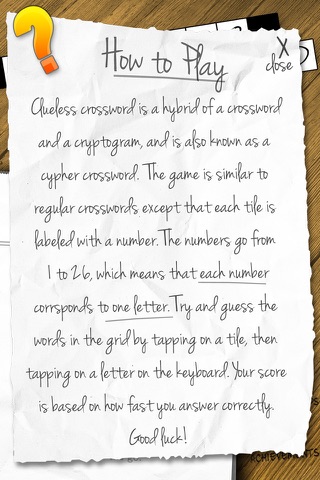 How to Play
X
close
Clueless crossword is a hybrid of a crossword
and a cryptogram, and is also known as a
cypher crossword. The game is similar to
regular crosswords except that each tile is
labeled with a number. The numbers go from
1 to 26, which means that each number
corrsponds to one letter. Try and guess the
words in the grid by tapping on a tile, then
tapping on a letter on the keyboard. Your score
is based on how fast you answer correctly.
Good luck!